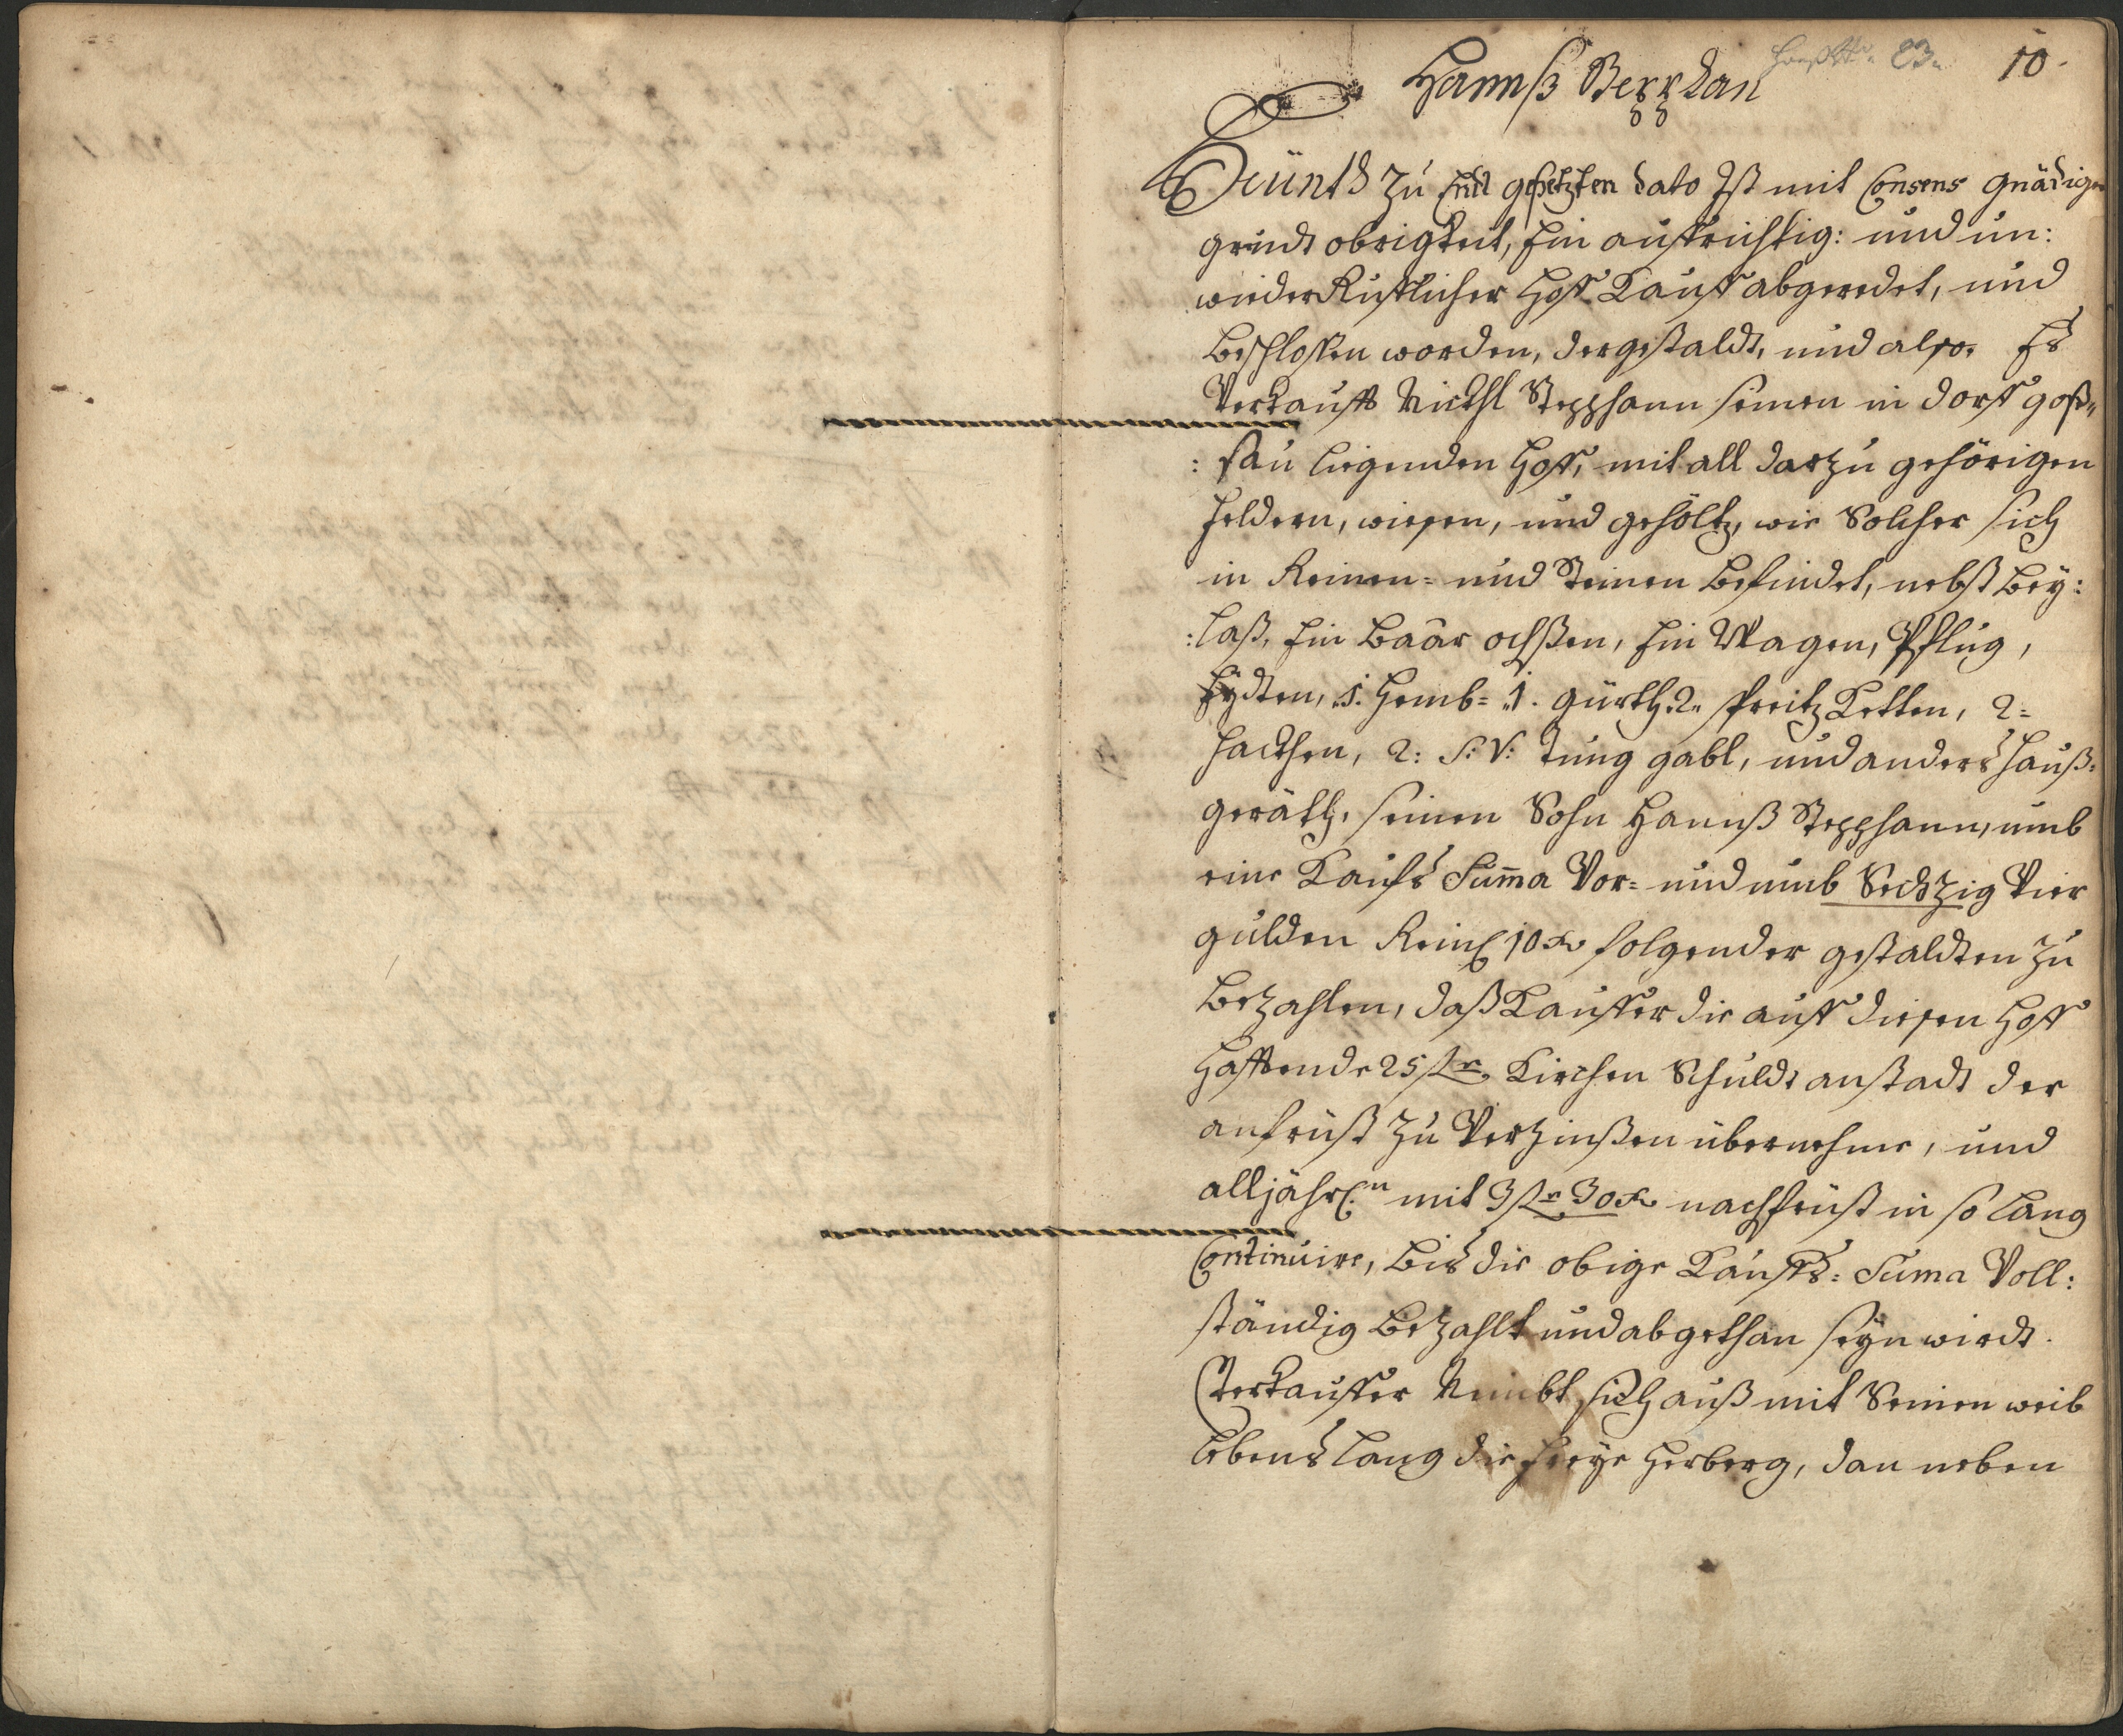 Hannß Steppan
Hauß Nr. 83.
10.
Heünth zu End gesetzten dato Ist mit Consens gnädiger
grundt obrigkeit, Ein auffrichtig: und un:
wiederRufflicher Hoff Kauff abgeredet, und
beschlossen worden, dergestaldt, und also. Es
Verkaufft Nickhl Stepphann seinen in dorff goß„
:sau liegenden Hoff, mit all darzu gehörigen
Feldern, wiesen, und gehöltz, wie Solcher sich
in Reinen= und Steinen befindet, nebst bey:
:laß, Ein baar ochßen, Ein Wagen, Pflug,
Eydten, 1. Hemb= 1. gürth. 2. spreitz Ketten, 2=
Hackhen, 2: S: V: Tung gabl, und anders Hauß=
geräth, seinen Sohn Hannß Stepphann, umb
eine Kaufs Suma Vor= und umb Sechzig Vier
gulden Rein 10 xr folgender gestaldten zu
bezahlen, daß Kauffer die auff diesen Hoff
Hafftende 25 ßr Kirchen Schuldt anstadt der
anfrüst zu Verzinßen übernehme, und
alljährl:n mit 3 ßr 30 xr nachfrüst in so lang
Continuire, bis die obige Kauffs= Suma Voll:
ständig bezahlt und abgethan seyn wirdt.
Verkauffer Nimbt sich auß mit Seinen weib
lebens lang die freye Herberg, dan neben